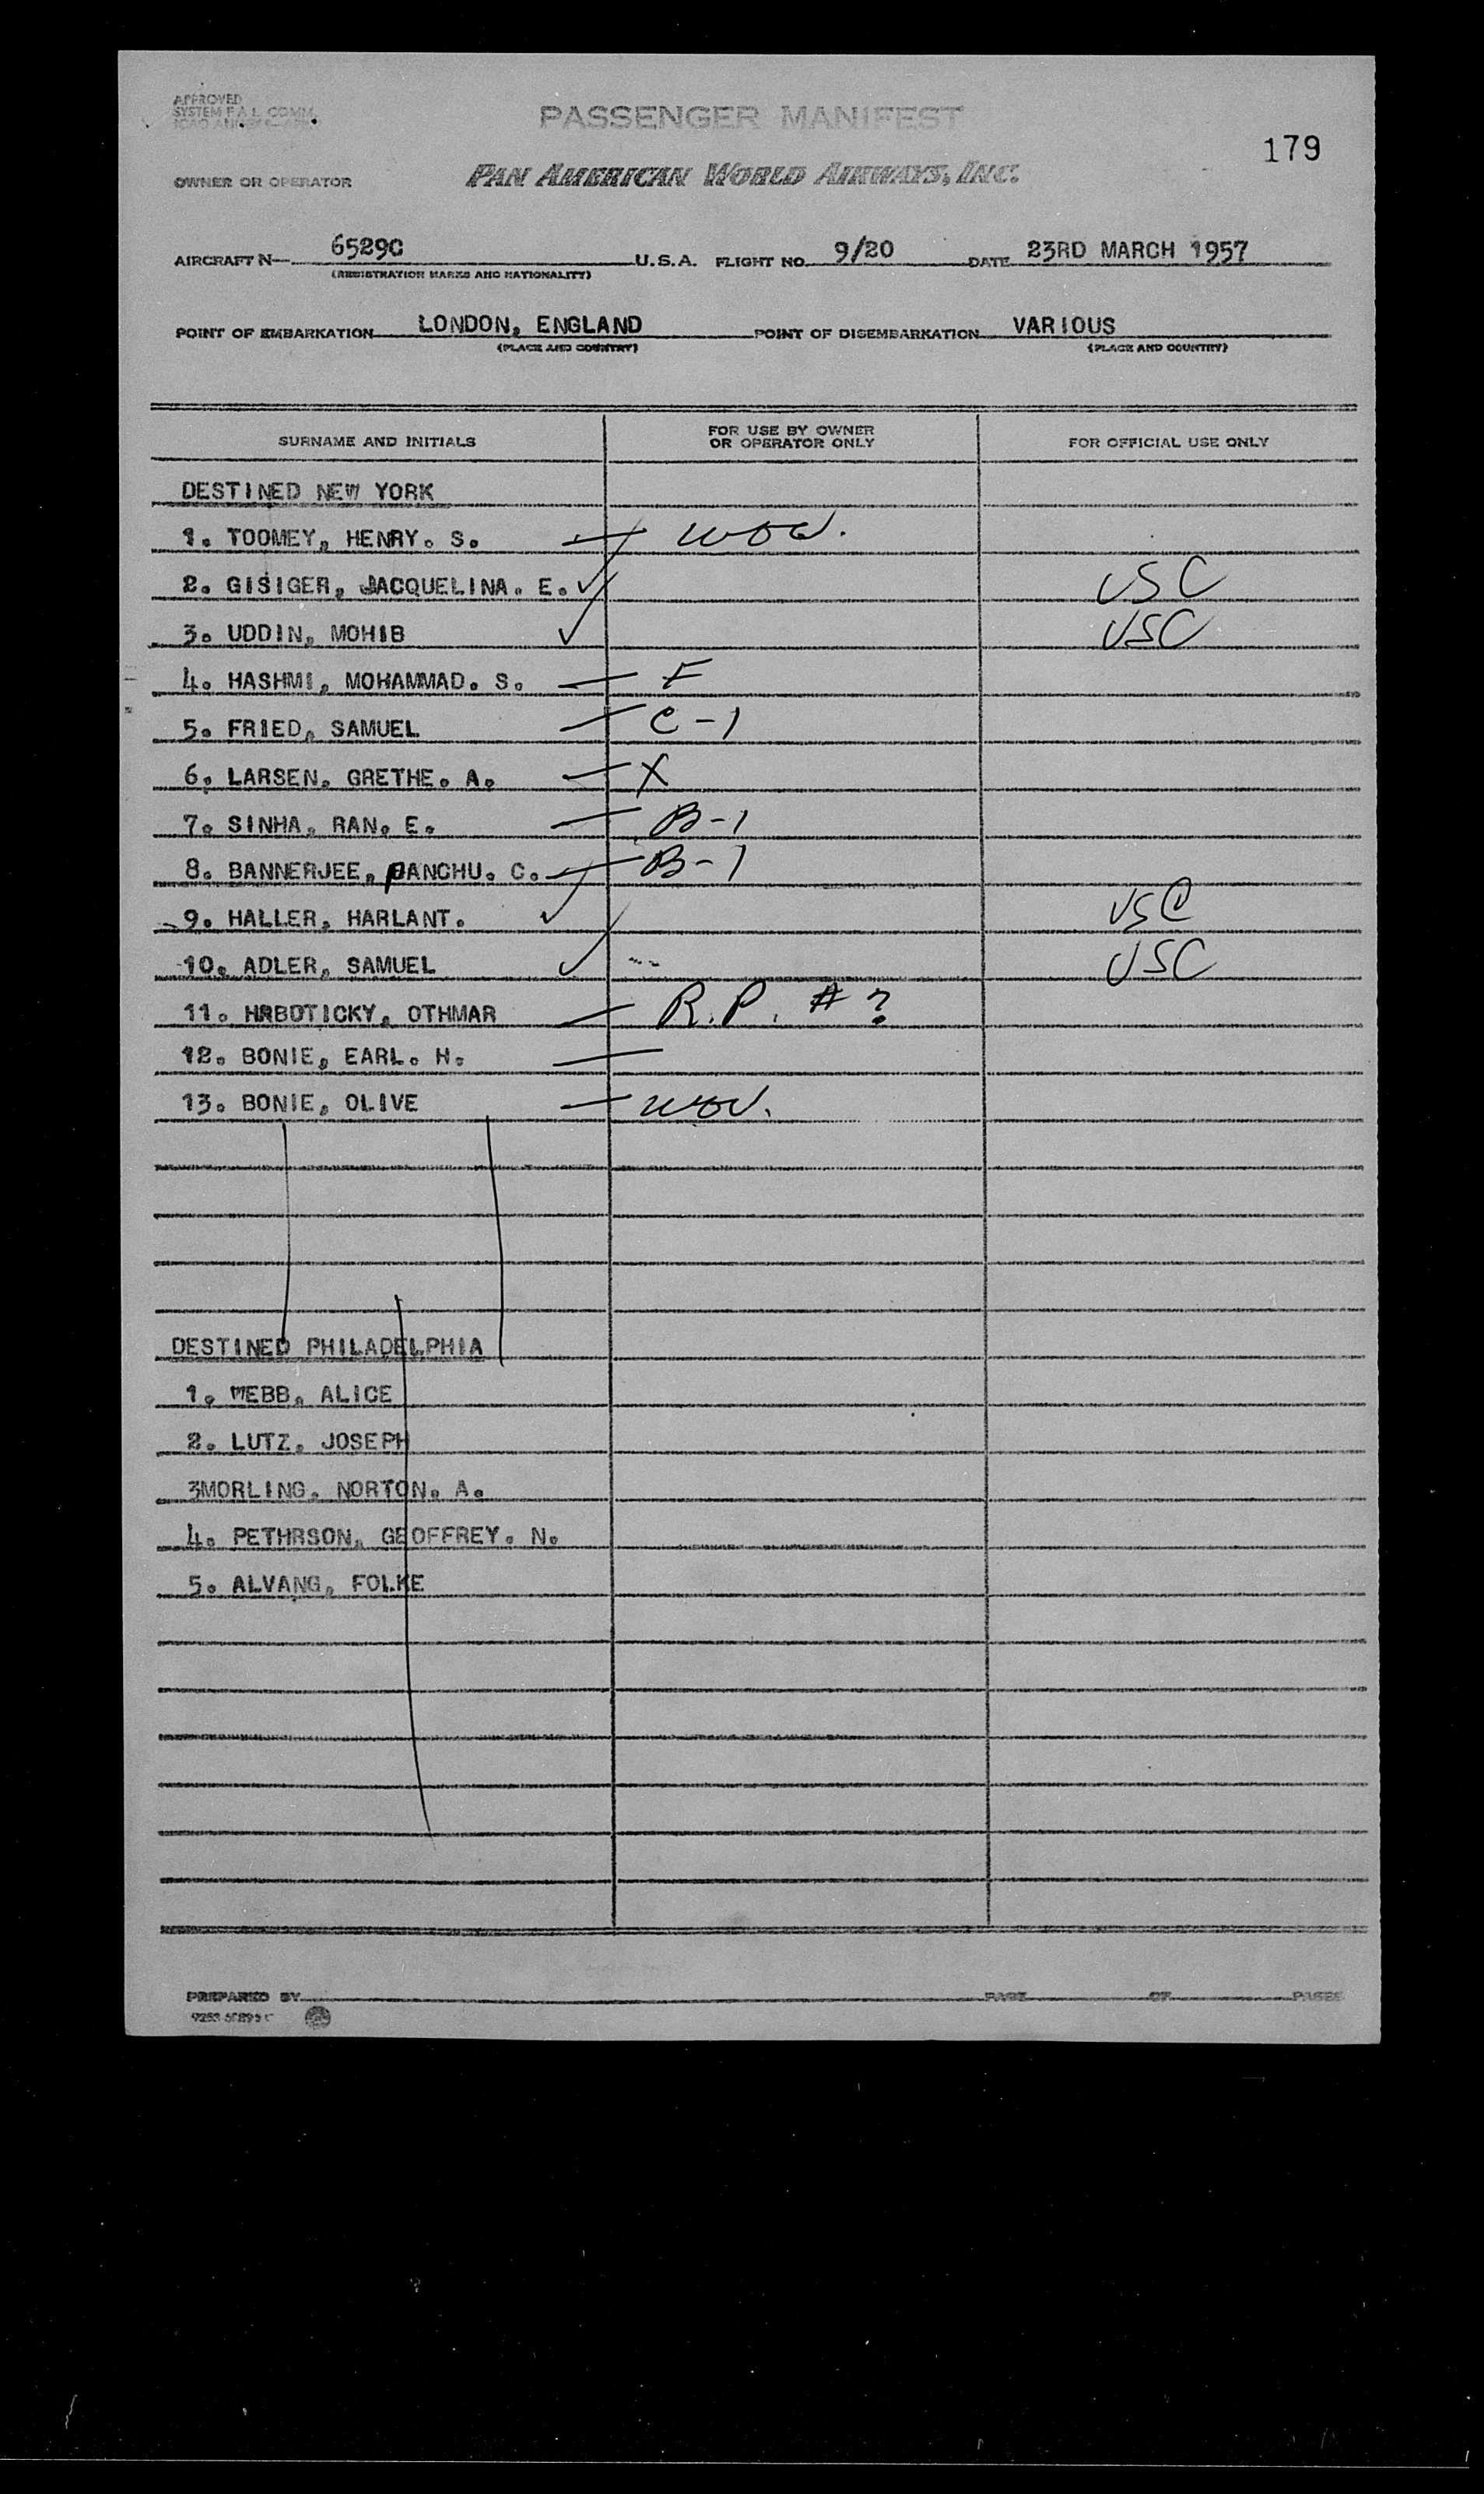 APPROVED
SYSTEM F.A.L. COMM.
PASSENGER MANIFEST
179
OWNER OR OPERATOR PAN AMERICAN WORLD AIRWAYS, INC.
AIRCRAFT N- 6529C U.S.A. FLIGHT NO. 9/20 DATE 23RD MARCH 1957
(REGISTRATION MARKS AND NATIONALITY)
POINT OF EMBARKATION LONDON, ENGLAND POINT OF DISEMBARKATION VARIOUS
(PLACE AND COUNTRY) (PLACE AND COUNTRY)
SURNAME AND INITIALS FOR USE BY OWNER OR OPERATOR ONLY FOR OFFICIAL USE ONLY
DESTINED NEW YORK
1. TOOMEY, HENRY. S.
2. GISIGER, JACQUELINA. E. USC
3. UDDIN, MOHIB USC
4. HASHMI, MOHAMMAD. S. F
5. FRIED, SAMUEL C-1
6. LARSEN, GRETHE. A. X
7. SINHA, RAN. E. B-1
8. BANNERJEE, PANCHU. C. B-1
9. HALLER, HARLANT. USC
10. ADLER, SAMUEL USC
11. HRBOTICKY, OTHMAR R.P. # ?
12. BONIE, EARL. H.
13. BONIE, OLIVE
DESTINED PHILADELPHIA
1. WEBB, ALICE
2. LUTZ, JOSEPH
3MORLING, NORTON. A.
4. PETHRSON, GEOFFREY. N.
5. ALVANG, FOLKE
PREPARED BY PAGE OF PAGES